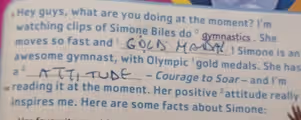 Hey guys, what are you doing at the moment? I'm
watching clips of Simone Biles do gymnastics. She
moves so fast and GOLD MADAL! Simone is an
awesome gymnast, with Olympic gold medals. She has
a ATTITUDE – Courage to Soar – and I'm
reading it at the moment. Her positive attitude really
inspires me. Here are some facts about Simone: